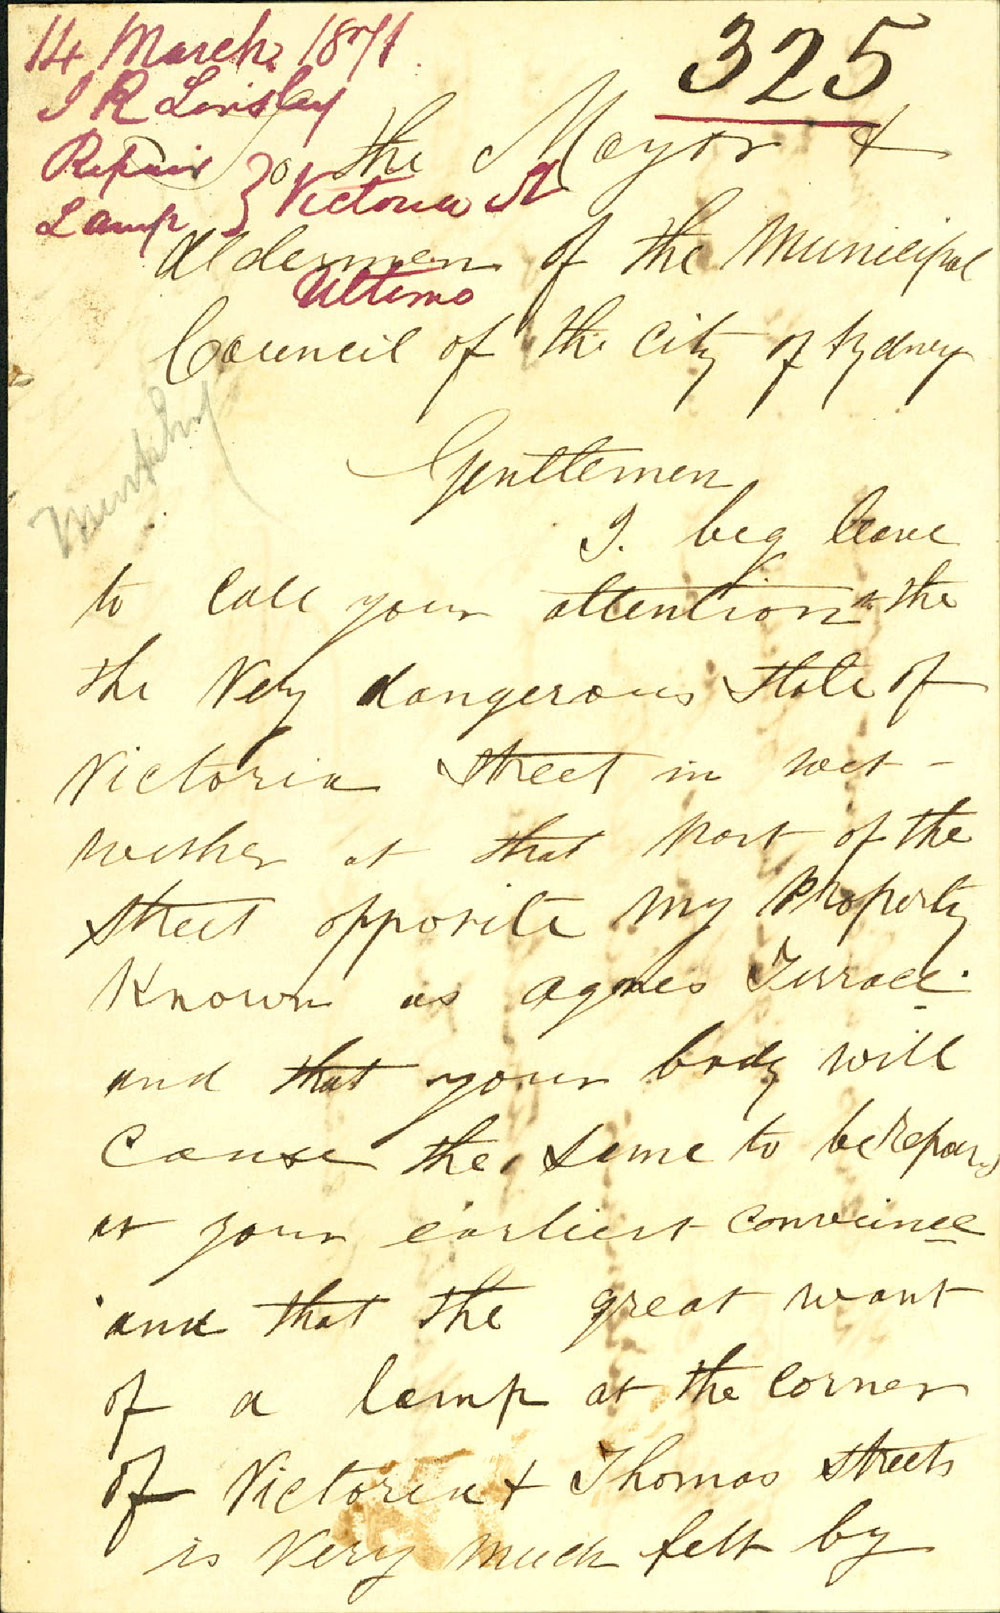 14 March 1871
325
J R Linsley
Repair
Lamp } Victoria St
Ultimo
To the Mayor &
Aldermen of the Municipal
Council of the City of Sydney
Murphy
Genttemen
I. beg leave
to call your attention to the
the Very dangerous state of
Victoria Street in wet-
wether at that part of the
street opposite My Property
Known as Agnes Terrace.
and that your body will
Cause the same to be Repair
at your earliest conveince
and that the great want
of a lamp at the corner
of Victoria & Thomas Streets
is Very Much felt by